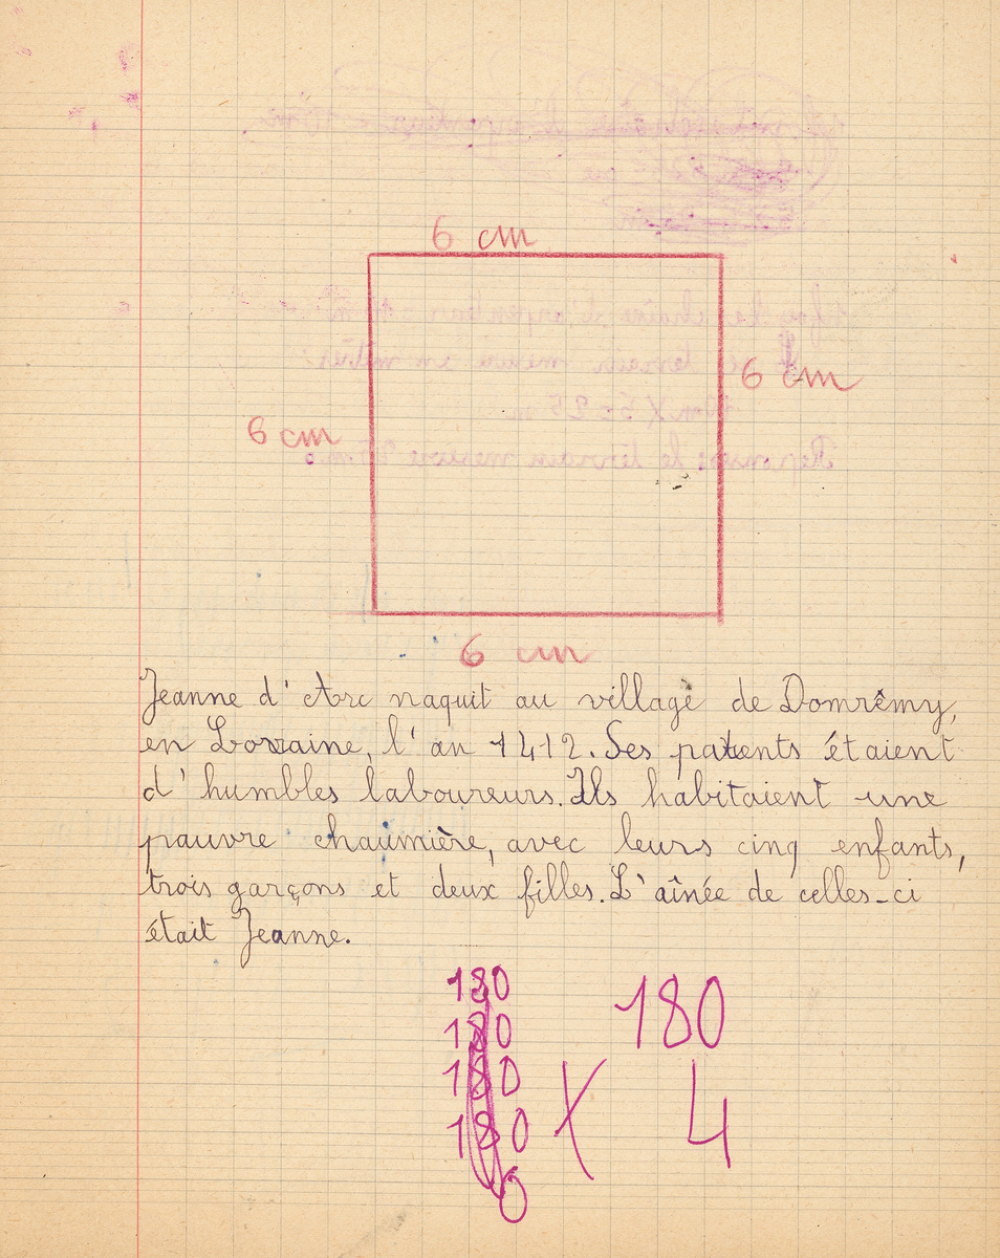 6 cm
6 cm
6 cm
6 cm
Jeanne d'Arc naquit au village de Domrêmy,
en Lorraine, l'an 1412. Ses parents étaient
d'humbles laboureurs. Ils habitaient une
pauvre chaumière, avec leurs cinq enfants,
trois garçons et deux filles. L'aînée de celles-ci
était Jeanne.
180
180
180
180
0
180
X 4